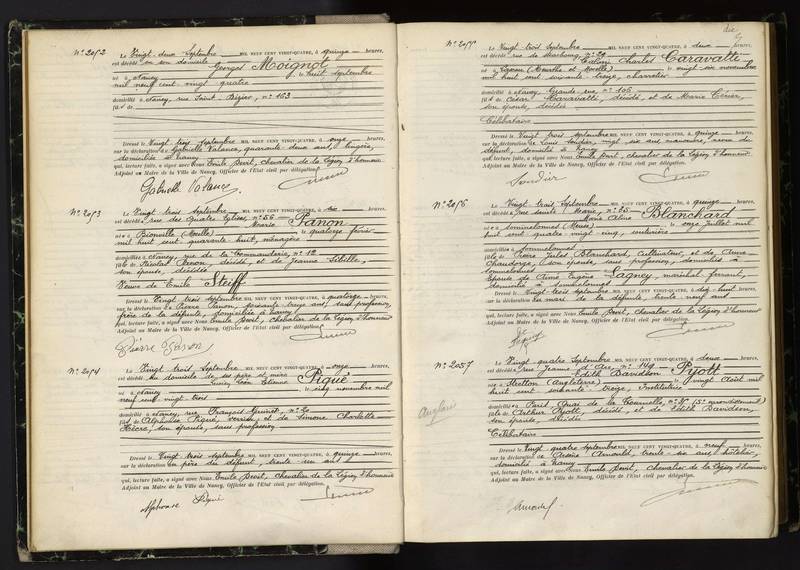 N° 2052
Le Vingt-deux Septembre MIL NEUF CENT VINGT-QUATRE, à quinze heures,
est décédé en son domicile
Georges Moignot
né à Nancy le huit septembre
mil neuf cent vingt quatre
domicilié à Nancy, rue Saint-Dizier, n° 163
fil de
Dressé le Vingt trois Septembre MIL NEUF CENT VINGT-QUATRE, à onze heures,
sur la déclaration de Gabrielle Valance, quarante-deux ans, lingère,
domiciliée à Nancy
qui, lecture faite, a signé avec Nous Emile Devit, chevalier de la Légion d'honneur
Adjoint au Maire de la Ville de Nancy, Officier de l'Etat civil par délégation.
N° 2053
Le Vingt-trois septembre MIL NEUF CENT VINGT-QUATRE, à six heures,
est décédée rue des quatre Eglises, n° 56
Marie Panon
née à Bionville (Moselle) le quatorze février
mil huit cent quarante huit, ménagère
domiciliée à Nancy, rue de la Commanderie, n° 12
fille de Nicolas Panon, décédé, et de Jeanne
son épouse, décédée
Veuve de Emile Steiff
Dressé le Vingt trois septembre MIL NEUF CENT VINGT-QUATRE, à quatorze heures,
sur la déclaration de Pierre Panon, ans, sans profession,
frère de la défunte, domicilié à Nancy
qui, lecture faite, a signé avec Nous Emile Devit, chevalier de la Légion d'honneur
Adjoint au Maire de la Ville de Nancy, Officier de l'Etat civil par délégation.
Pierre Panon
N° 2054
Le Vingt trois Septembre MIL NEUF CENT VINGT-QUATRE, à onze heures,
est décédé au domicile de ses père et mère
Lucien Léon Etienne Piqué
né à Nancy le cinq novembre mil
neuf cent vingt trois
domicilié à Nancy, rue François
fils de Alphonse Piqué, verrier, et de Simone Charlotte
son épouse, sans profession
Dressé le Vingt trois septembre MIL NEUF CENT VINGT-QUATRE, à quinze heures,
sur la déclaration du père du défunt, trente un ans
qui, lecture faite, a signé avec Nous Emile Devit, chevalier de la Légion d'honneur
Adjoint au Maire de la Ville de Nancy, Officier de l'Etat civil par délégation.
Alphonse Piqué
N° 2055
Le Vingt-trois Septembre MIL NEUF CENT VINGT-QUATRE, à deux heures,
est décédé rue de Strasbourg, n° 29
Charles Caravatti
né à (Meurthe et Moselle) le vingt six novembre
mil huit cent soixante treize, charretier
domicilié à Nancy, Grande rue, n° 106
fils de César Caravatti, décédé, et de Marie
son épouse, décédée
Célibataire
Dressé le Vingt trois Septembre MIL NEUF CENT VINGT-QUATRE, à quinze heures,
sur la déclaration de Louis Soudier, vingt six ans, neveu du
défunt, domicilié à Nancy
qui, lecture faite, a signé avec Nous Emile Devit, chevalier de la Légion d'honneur
Adjoint au Maire de la Ville de Nancy, Officier de l'Etat civil par délégation.
Soudier
N° 2056
Le Vingt trois Septembre MIL NEUF CENT VINGT-QUATRE, à quinze heures,
est décédée rue Sainte Marie, n° 35
Marie Aline Blanchard
née à Sommelonne (Meuse) le onze juillet mil
huit cent quatre vingt cinq, couturière
domiciliée à Sommelonne
fille de Pierre Jules Blanchard, cultivateur, et de Anne
son épouse, sans profession, domiciliés à
Sommelonne
Epouse de Aimé Eugène Lagney, maréchal ferrant,
domicilié à Sommelonne
Dressé le Vingt trois Septembre MIL NEUF CENT VINGT-QUATRE, à dix-huit heures,
sur la déclaration du mari de la défunte, trente neuf ans
qui, lecture faite, a signé avec Nous Emile Devit, chevalier de la Légion d'honneur
Adjoint au Maire de la Ville de Nancy, Officier de l'Etat civil par délégation.
N° 2057
Anglais
Le Vingt quatre Septembre MIL NEUF CENT VINGT-QUATRE, à deux heures,
est décédée rue Jeanne d'Arc, n° 149
Edith Davidson Pyott
née à Stretton (Angleterre) le vingt août mil
huit cent soixante treize, Institutrice
domiciliée à Paris, Quai de la Tournelle, (5e arrondissement)
fille de Arthur Pyott, décédé, et de Edith Davidson,
son épouse, décédée
Célibataire
Dressé le Vingt quatre Septembre MIL NEUF CENT VINGT-QUATRE, à neuf heures,
sur la déclaration de Arnould, trente six ans, hôtelier,
domicilié à Nancy
qui, lecture faite, a signé avec Nous Emile Devit, chevalier de la Légion d'honneur
Adjoint au Maire de la Ville de Nancy, Officier de l'Etat civil par délégation.